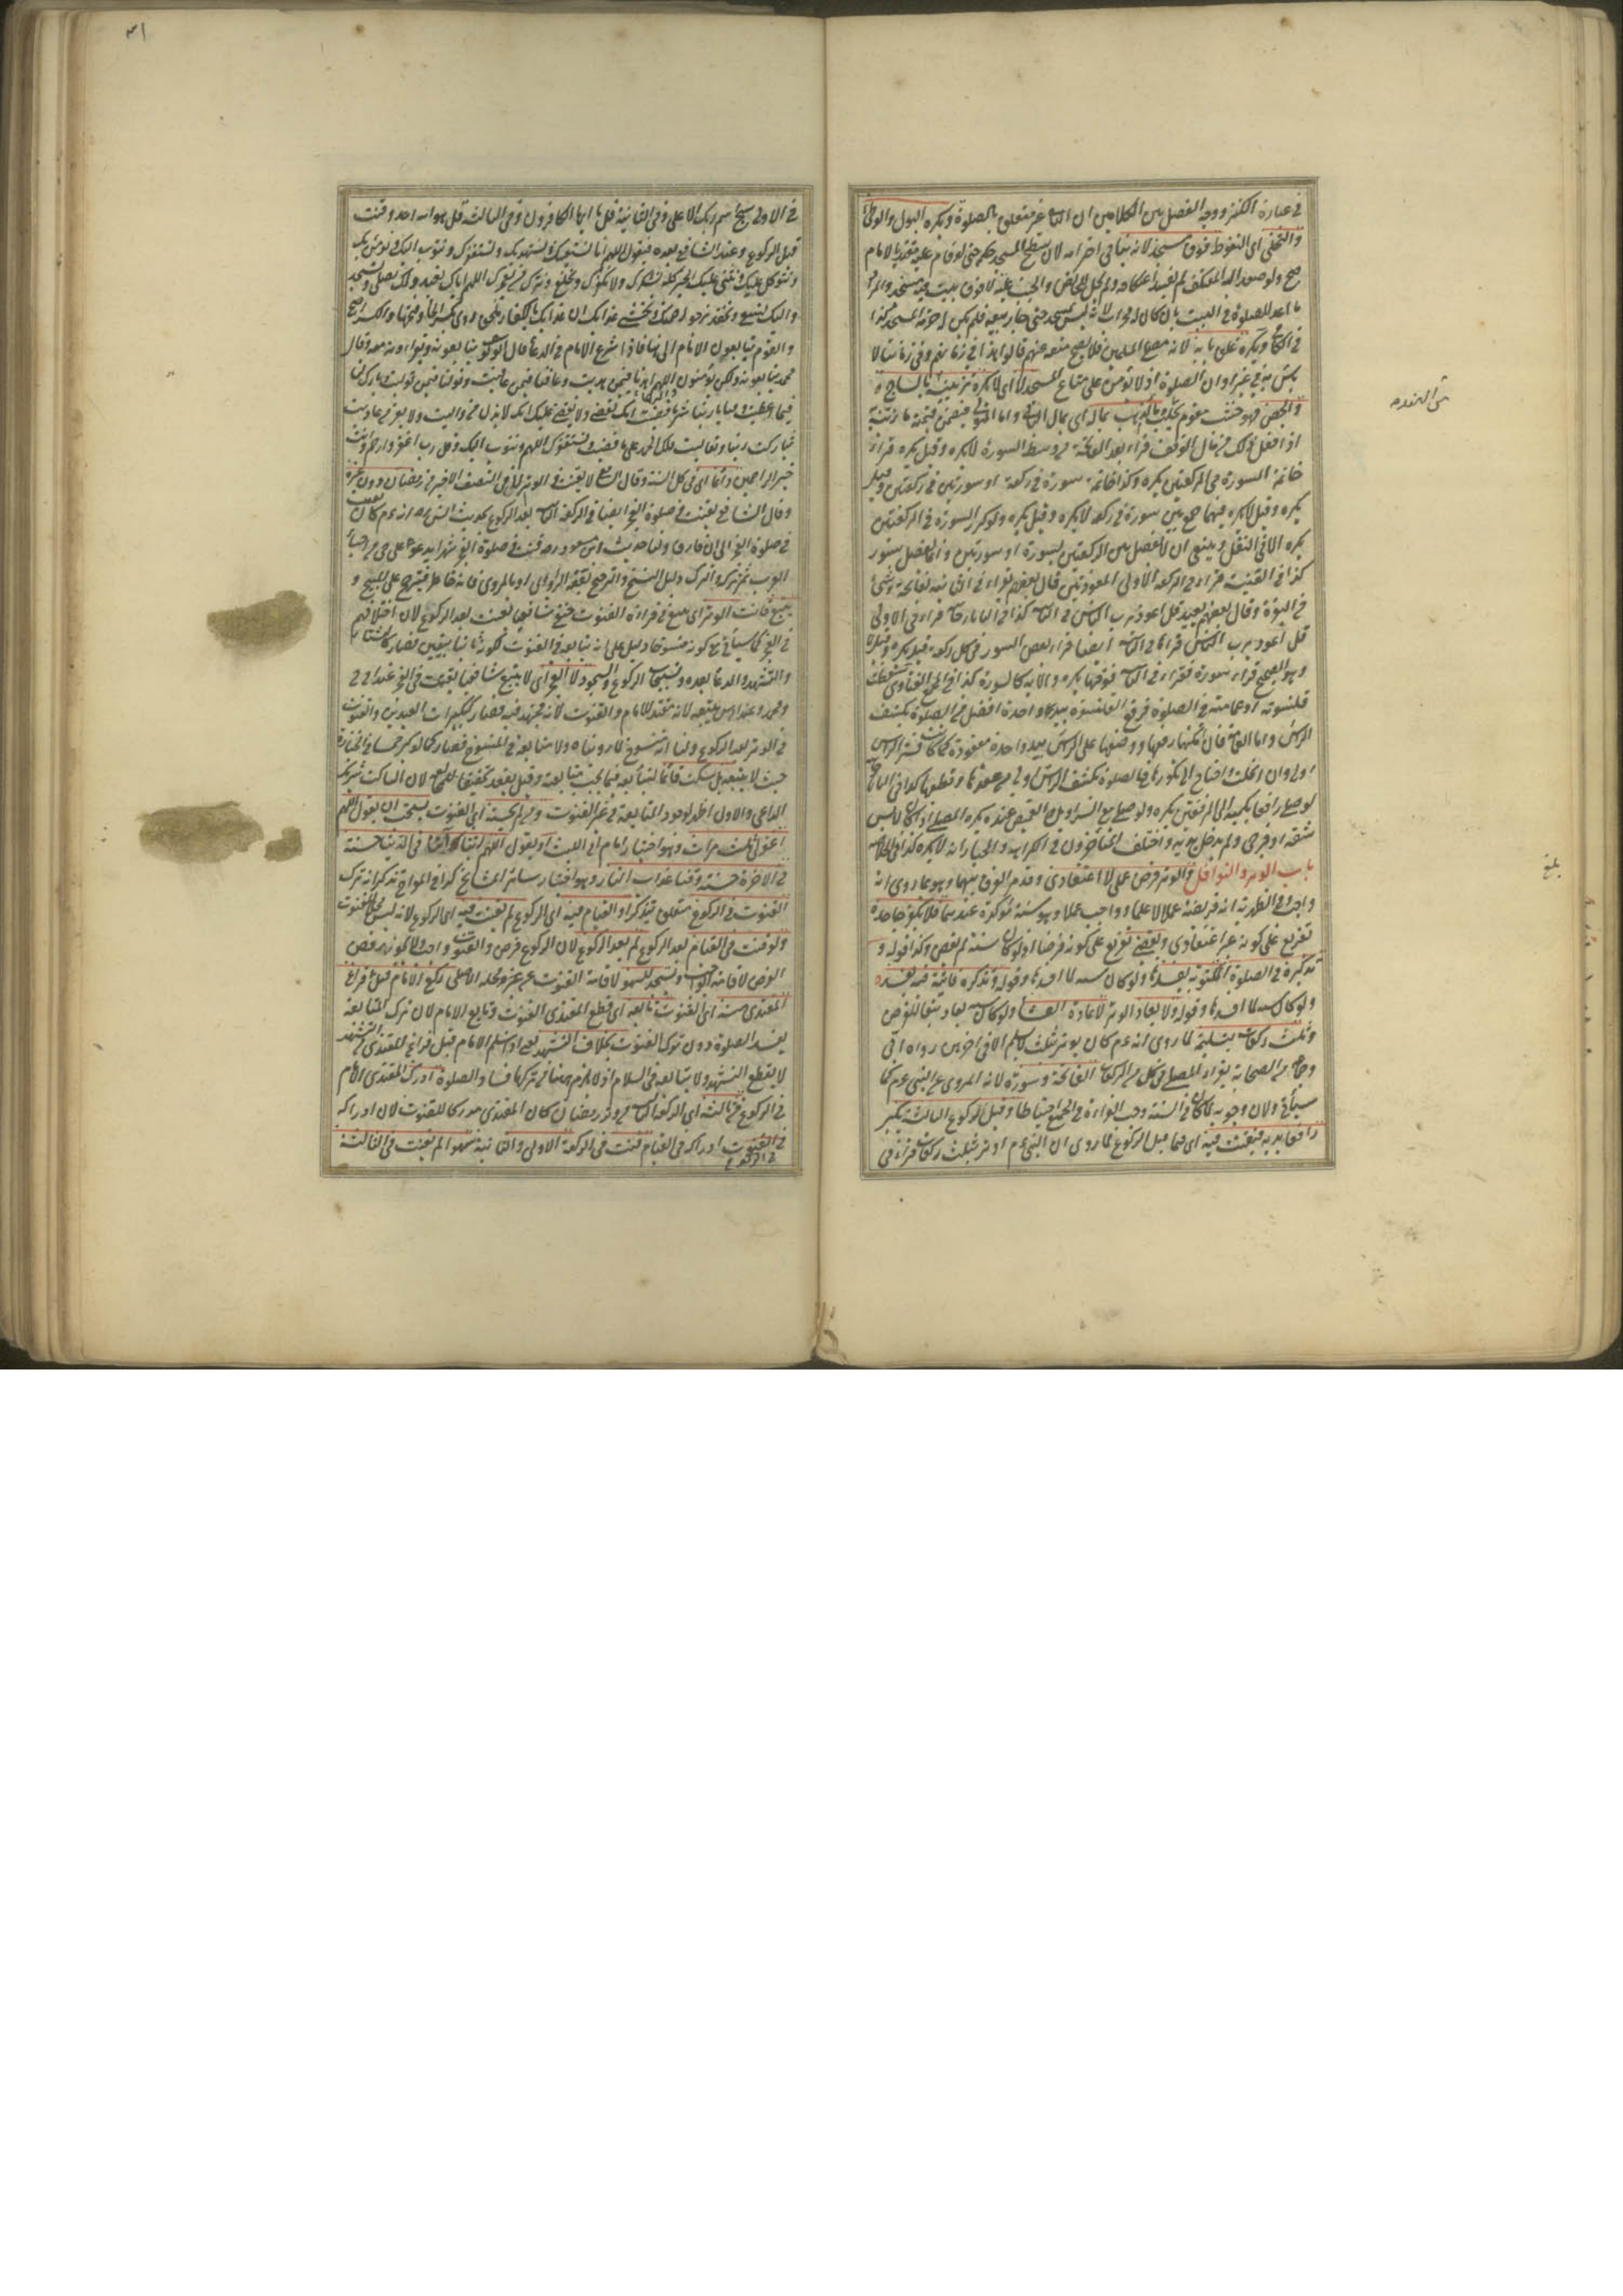 في عبارة الكنز ووجه الفصل بين الكلامين ان الثاني غير متعلق بالصلوة ويكره البول والوطئ
والتخلي اى التغوط فوق مسجد لانه ينافي احترامه لان سطح المسجد حكمه حتى لو قام عليه مقتديا بالامام
صح ولو صعد اليه المعتكف لم يفسد اعتكافه ولم يحل للحائض والجنب عليه لا فوق بيت فيه مسجد والمراد
ما اعد للصلوة في البيت بان كان له محراب لانه ليس بمسجد حتى جاز بيعه فلم يكن له حرمة المسجد كذا
في الكافي ويكره غلق بابه لانه مصلى المسلمين فلا يصح منعه عنهم قالوا هذا في زمانهم وفي زماننا لا
بأس به في غير اوان الصلوة اذ لا يؤمن على متاع المسجد لا اى لا يكره تزيينه بالساج
والجص وماء الذهب بماله اى بمال الباني واما المتولي فيضمن قيمة ما زينته
اذا فعل ذلك من مال الوقف قراءة بعد الفاتحة من وسط السورة لا يكره وقيل يكره قراءة
خاتمة السورة في الركعتين يكره وكذا خاتمة سورة في ركعة او سورتين في ركعتين وقيل
يكره وقيل لا يكره فيهما جمع بين سورة في ركعة لا يكره وقيل يكره ولو كرر السورة في الركعتين
يكره الا في النفل وينبغي ان لا يفصل بين الركعتين بسورة او سورتين وانما يفصل بسور
كذا في القنية قراء في الركعة الاولى المعوذتين قال بعضهم يقراء في الثانية بفاتحة وشئ
في البقرة وقال بعضهم يعيد قل اعوذ برب الناس في الثانية كذا في التاتارخانية قراء في الاولى
قل اعوذ برب الناس قراها في الثانية ايضا قراء بعض السور في كل ركعة قيل يكره وقيل لا
وهو الصحيح قراء سورة فقراء في الثانية فوقها يكره والاية كالسورة كذا في مجمع الفتاوى سقطت
قلنسوته او عمامته في الصلوة فرفع القلنسوة بيد واحدة افضل من الصلوة بكشف
الراس واما العمامة فان امكنها رفعها ووضعها على الراس بيد واحدة معقودة كما كانت فستر الراس
اولى وان انحلت واحتاج الى تكويرها فالصلوة بكشف الراس اولى من عقدها وقطعها كذا في التاتارخانية
لو صلى رافعا كميه الى المرفقين يكره ولو صلى مع السراويل والقميص عنده يكره المصلى اذا كان لابس
شقة او فرجى ولم يدخل يديه واختلف المتأخرون في الكراهة والمختار انه لا يكره كذا في الخلاصة
باب الوتر والنوافل والوتر فرض عملى لا اعتقادى وقدم الفرق بينهما وهو ما روى انه
واجب وفي الظهيرية انه فريضة عملا لا علما وواجب عملا وهو سنة مؤكدة عندهما فلا يكفر جاحده
تفريع على كونه غير اعتقادى ويقضى تفريع على كونه فرضا اذ لو كان سنة لم يقض وكذا قوله و
تذكره في الصلوة المكتوبة يفسدها ولو كان سنة لما افسدها وقوله وتذكره فائتة فيه يفسده
ولو كان سنة لما افسدها وقوله ولا يعاد الوتر لاعادة العشاء ولو كان سنة يعاد تبعا للفرض
وثلث ركعات بتسليمة لما روى انه عم كان يوتر بثلث لا يسلم الا في اخرهن رواه ابى
وجماعة من الصحابة يقراء المصلى في كل من الركعات الفاتحة وسورة لانه المروى عن النبى عم كما
سيأتى ولان وجوبه لما كان في السنة وجب القراءة في الجميع احتياطا وقبل الركوع الثالثة يكبر
رافعا يديه فيقنت فيه اى فيما قبل الركوع لما روى ان النبى عم اوتر بثلث ركعات قراء في
بلغ
٣١
في الاولى سبح اسم ربك الاعلى وفي الثانية قل يا ايها الكافرون وفي الثالثة قل هو الله احد وقنت
قبل الركوع وعند الشافعى بعده فيقول اللهم انا نستعينك ونستهديك ونستغفرك ونتوب اليك ونؤمن بك
ونتوكل عليك ونثنى عليك الخير كله نشكرك ولا نكفرك ونخلع ونترك من يفجرك اللهم اياك نعبد ولك نصلى ونسجد
واليك نسعى ونحفد نرجو رحمتك ونخشى عذابك ان عذابك بالكفار ملحق روى بكسر الحاء وفتحها والكسر اصح
والقوم يتابعون الامام الى هنا فاذا شرع الامام في الدعاء قال ابو يوسف يتابعونه ويقراونه معه وقال
محمد يتابعونه ولكن يؤمنون اللهم اهدنا فيمن هديت وعافنا فيمن عافيت وتولنا فيمن توليت وبارك لنا
فيما اعطيت وقنا يا ربنا شر ما قضيت انك تقضى ولا يقضى عليك انك لا يذل من واليت ولا يعز من عاديت
تباركت ربنا وتعاليت فلك الحمد على ما قضيت ونستغفرك اللهم ونتوب اليك وقل رب اغفر وارحم وانت
خير الراحمين دائما اى في كل السنة وقال الشافعى لا يقنت في الوتر الا في النصف الاخير من رمضان دون غيره
وقال الشافعى يقنت في صلوة الفجر ايضا في الركعة الثانية بعد الركوع لحديث انس رضه انه عم كان يقنت
في صلوة الفجر الى ان فارق ولنا حديث ابن مسعود رضه قنت في صلوة الفجر شهرا يدعو على حى من احياء
العرب ثم تركه والترك دليل النسخ والترجيح بفقه الراوى او بالمروى فانه حاظر فيترجح على المبيح و
يتبع قانت الوتر اى يتبع في قراءة القنوت حنفى شافعيا يقنت بعد الركوع لان اختلافهم
في الفجر كما سيأتى مع كونه منسوخا دليل على انه يتابعه في القنوت لكونه ثابتا بيقين فصار كالثناء
والتشهد والدعاء بعده وتسبيحات الركوع والسجود لا الفجر اى لا يتبع شافعيا يقنت في الفجر عند ابى ح
ومحمد وعند ابى س يتبعه لانه مقتد للامام والقنوت لانه مجتهد فيه فصار كتكبيرات العيدين والقنوت
في الوتر بعد الركوع ولنا انه منسوخ لما روينا ولا متابعة في المنسوخ فصار كما لو كبر خمسا في الجنازة
حيث لا يتبعه بل يسكت قائما ليتابعه فيما يجب متابعته وقيل يقعد تحقيقا للمخالفة لان الساكت شريك
الداعى والاول اظهر لوجود المتابعة في غير القنوت ومن لم يحسنه اى القنوت يستحب ان يقول اللهم
اغفر لى ثلث مرات وهو اختيار الامام ابى الليث او يقول اللهم ربنا اتنا في الدنيا حسنة
وفي الاخرة حسنة وقنا عذاب النار وهو اختيار سائر المشايخ كذا في المعراج تذكر انه ترك
القنوت في الركوع متعلق بتذكر او القيام منه اى الركوع لم يقنت فيه اى الركوع لانه ليس محل القنوت
ولو قنت في القيام بعد الركوع لم يعد الركوع لان الركوع فرض والقنوت واجب ولا يجوز رفض
الفرض لاقامة الواجب ويسجد للسهو لاقامة القنوت عن محله الاصلى ركع الامام قبل فراغ
المقتدى منه اى القنوت تابعه اى قطع المقتدى القنوت وتابع الامام لان ترك المتابعة
يفسد الصلوة دون ترك القنوت بخلاف التشهد يعنى اذا سلم الامام قبل فراغ المقتدى من التشهد
لا يقطع التشهد ولا يتابعه في السلام اذ لا يلزم ههنا من تركها فساد الصلوة ادرك المقتدى الامام
في الركوع في ثالثة اى الركعة الثالثة من وتر رمضان كان المقتدى مدركا للقنوت لان ادراكه
في الركوع ادراكه في القيام قنت في الركعة الاولى والثانية سهوا لم يقنت في الثالثة